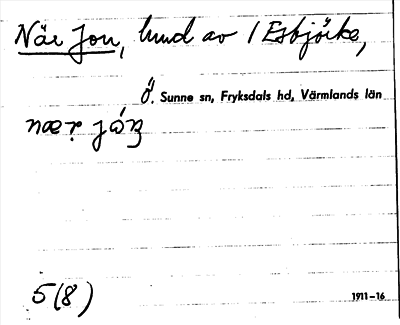 När Jon, lund av 1 Esbjörke,
Ö. Sunne sn, Fryksdals hd, Värmlands län
5(8)
1911-16